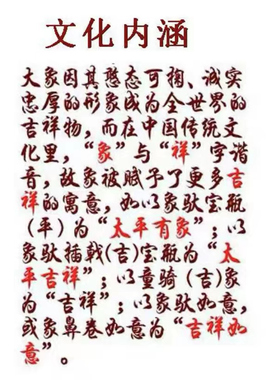 文化内涵
大象因其憨态可掬、诚实
忠厚的形象成为全世界的
吉祥物，而在中国传统文
化里，“象”与“祥”字谐
音，故象被赋予了更多吉
祥的寓意，如以象驮宝瓶
(平)为“太平有象”；以
象驮插戟(吉)宝瓶为“太
平吉祥”；以童骑(吉)象
为“吉祥”；以象驮如意，
或象鼻卷如意为“吉祥如
意”。